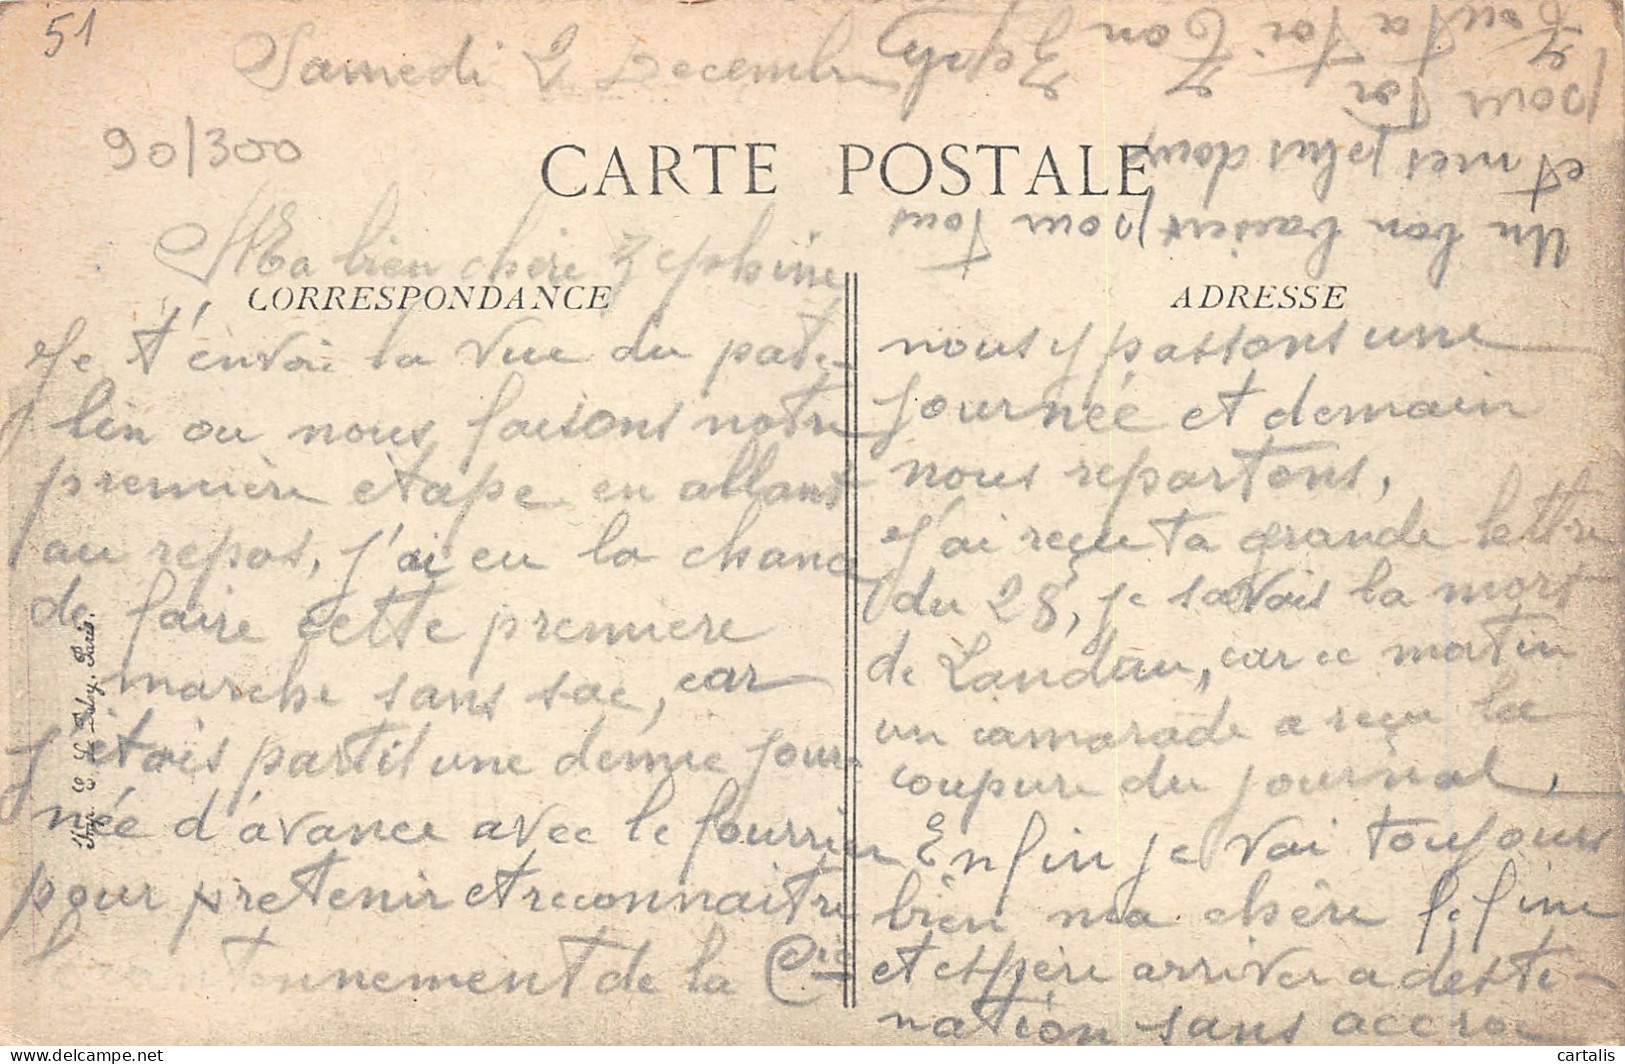 51
Samedi 2 Decembre
90/300
CARTE POSTALE
Ma bien chère Zephine
CORRESPONDANCE
Je t'envoi la vue du pate-
lin ou nous faisons notre
première étape en allant
au repos, j'ai eu la chance
de faire cette première
marche sans sac, car
j'étais partit une demie jour-
née d'avance avec le fourrier
pour pretenir et reconnaitre
le cantonnement de la Cie
ADRESSE
nous y passons une
journée et demain
nous repartons,
J'ai reçu ta grande lettre
du 28, je savais la mort
de Landau, car ce matin
un camarade a reçu la
coupure du journal,
Enfin je vai toujours
bien ma chère fefine
et espère arriver a desti-
nation sans accroc
Un bon baiser pour tous
et mes plus doux
pour Toi
Tout a Toi Ton
Zephy
Imp. E. Le Deley, Paris.
cartalis